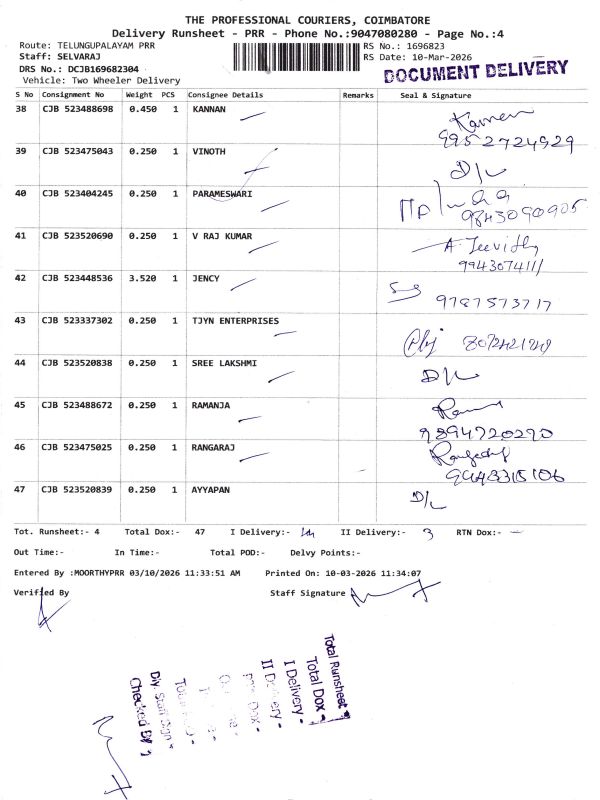 THE PROFESSIONAL COURIERS, COIMBATORE
Delivery Runsheet - PRR - Phone No.:9047080280 - Page No.:4
Route: TELUNGUPALAYAM PRR RS No.: 1696823
Staff: SELVARAJ RS Date: 10-Mar-2026
DRS No.: DCJB169682304 DOCUMENT DELIVERY
Vehicle: Two Wheeler Delivery
S No Consignment No Weight PCS Consignee Details Remarks Seal & Signature
38 CJB 523488698 0.450 1 KANNAN Kannan
9952724929
39 CJB 523475043 0.250 1 VINOTH D/L
40 CJB 523404245 0.250 1 PARAMESWARI
9843090905
41 CJB 523520690 0.250 1 V RAJ KUMAR
9943074111
42 CJB 523448536 3.520 1 JENCY
9787573717
43 CJB 523337302 0.250 1 TJYN ENTERPRISES
44 CJB 523520838 0.250 1 SREE LAKSHMI D/L
45 CJB 523488672 0.250 1 RAMANJA
9894720290
46 CJB 523475025 0.250 1 RANGARAJ
9948315106
47 CJB 523520839 0.250 1 AYYAPAN D/L
Tot. Runsheet:- 4 Total Dox:- 47 I Delivery:- 44 II Delivery:- 3 RTN Dox:- -
Out Time:- In Time:- Total POD:- Delvy Points:-
Entered By :MOORTHYPRR 03/10/2026 11:33:51 AM Printed On: 10-03-2026 11:34:07
Verified By Staff Signature
Total Runsheet -
Total Dox -
I Delivery -
II Delivery -
Dly Staff Sign -
Checked By